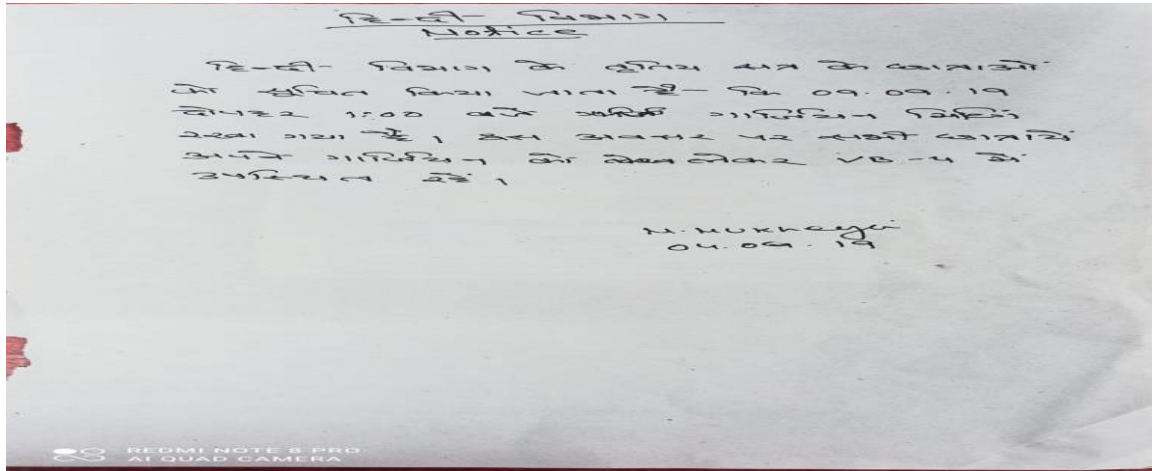 हिन्दी विभाग
Notice
हिन्दी विभाग के तृतिय सत्र के छात्राओं
को सुचित किया जाता है कि 09.09.19
दोपहर 1:00 बजे गार्जियन मिटिंग
रखा गया है। इस अवसर पर सभी छात्रायें
अपने गार्जियन को लेकर VB-4 में
उपस्थित रहें।
N. Mukherjee
04.09.19
REDMI NOTE 8 PRO
AI QUAD CAMERA